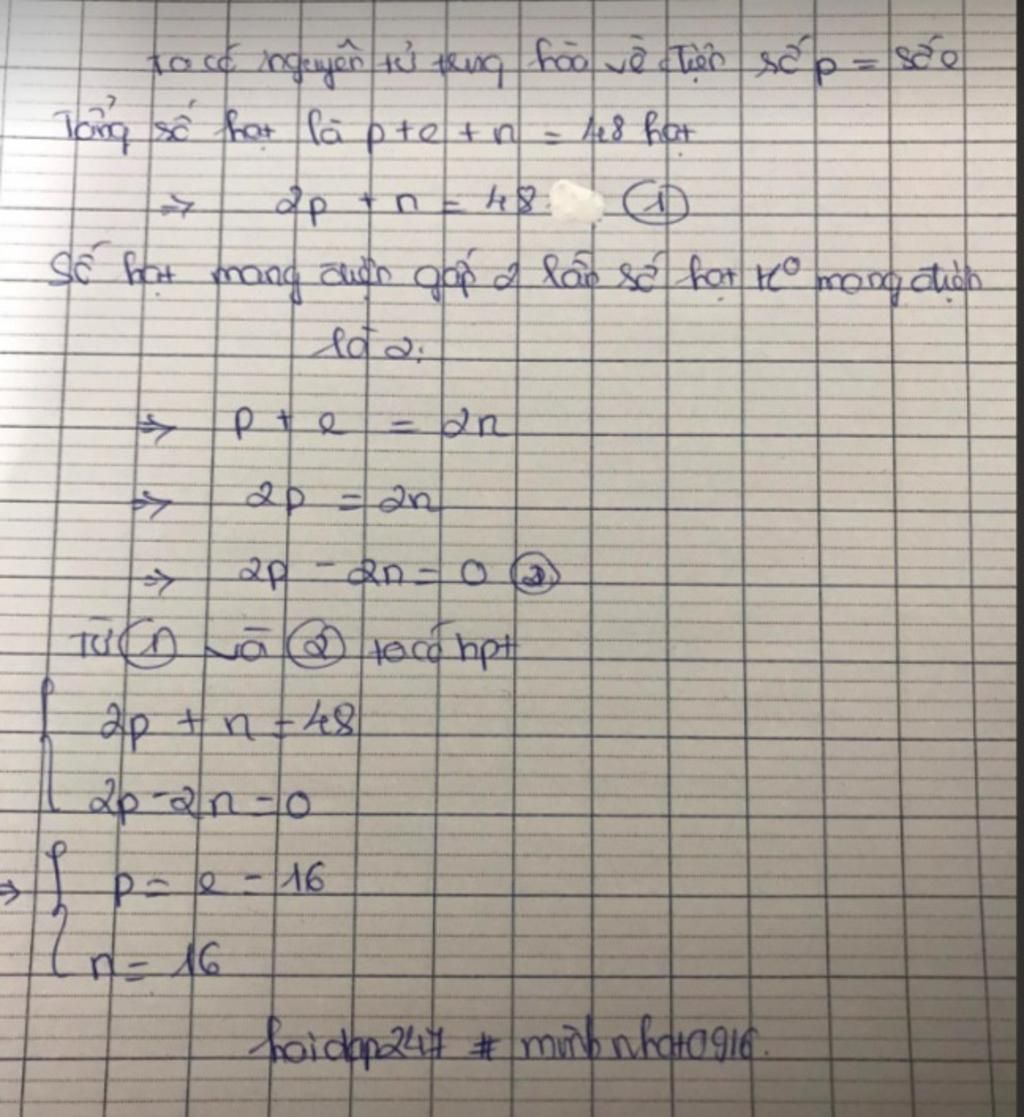 ta có nguyên tử trung hòa về điện số p = số e
Tổng số hạt là p + e + n = 48 hạt
=> 2p + n = 48 (1)
Số hạt mang điện gấp 2 lần số hạt k⁰ mang điện
là 2.
=> p + e = 2n
=> 2p = 2n
=> 2p - 2n = 0 (2)
Từ (1) và (2) ta có hpt
{ 2p + n = 48
2p - 2n = 0
=> { p = e = 16
n = 16
hoidap247 # minhnhat0916.